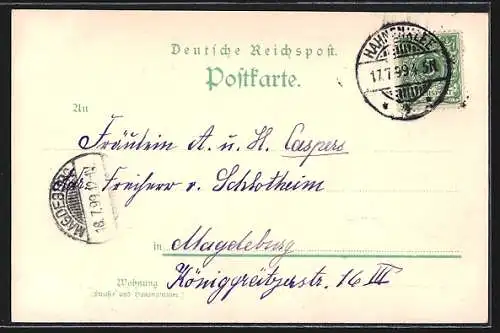 Deutsche Reichspost.
Postkarte.
HAHNENKLEE
17.7.99. 4-5N
An
Fräulein A. u. H. Caspers
Freiherr v. Schlotheim
MAGDEBURG
18.7.99
in Magdeburg
Wohnung
(Straße und Hausnummer)
Königgrätzerstr. 16 III